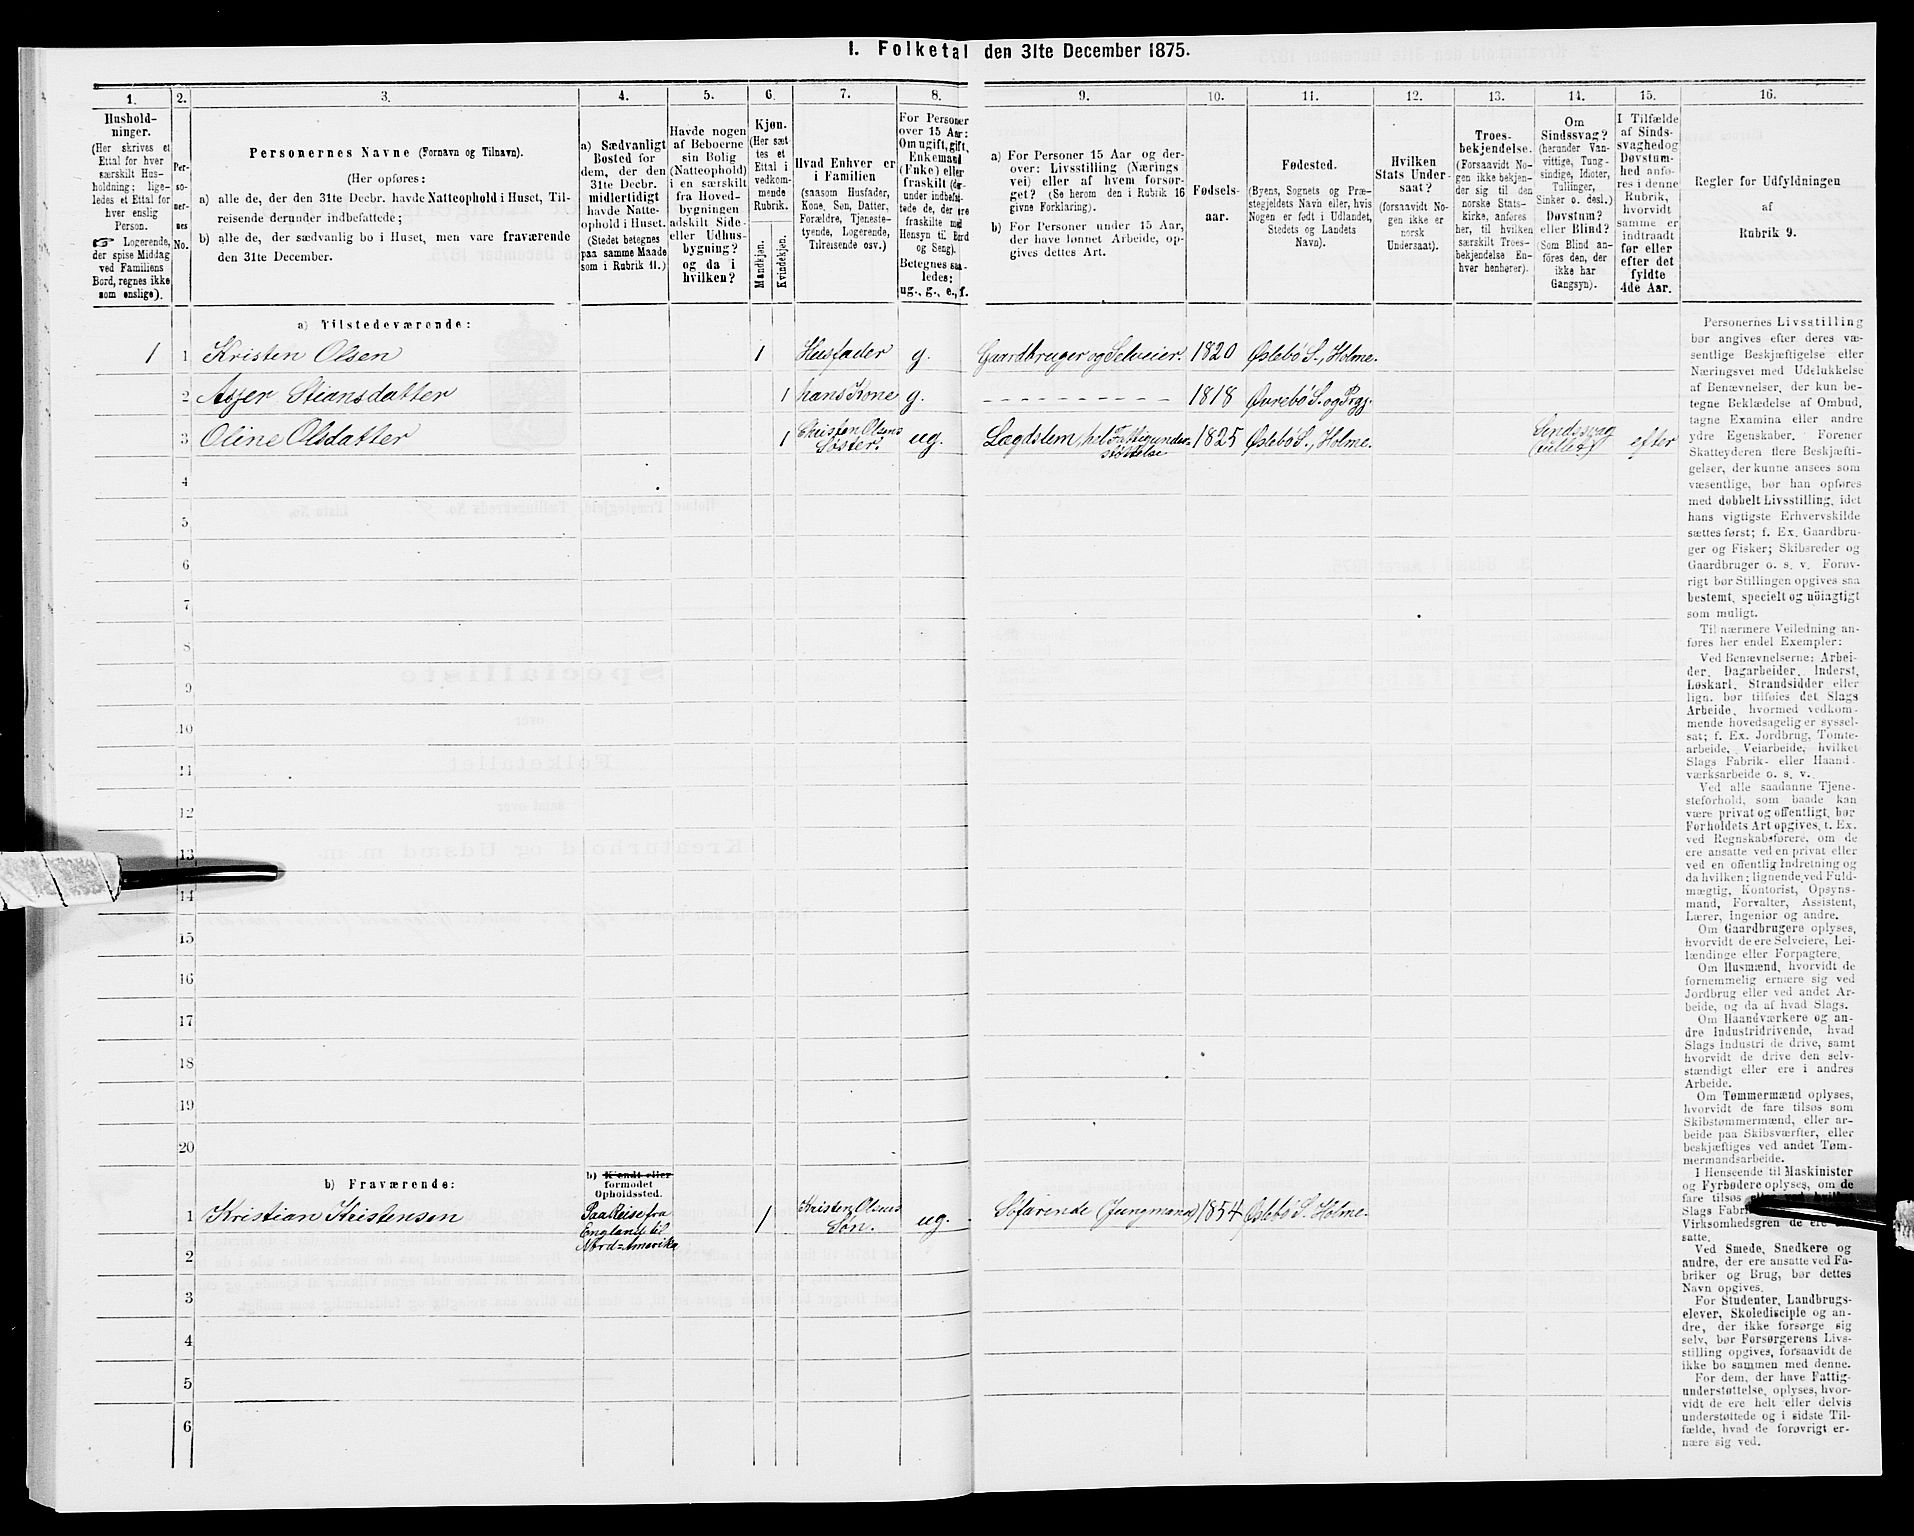 I. Folketal den 31te December 1875.
1. 2. 3. 4. 5. 6. 7. 8. 9. 10. 11. 12. 13. 14. 15. 16.
Hushold-
ninger.
(Her skrives et
Ettal for hver
særskilt Hus-
holdning; lige-
ledes et Ettal for
hver enslig
Person.
☞ Logerende,
der spise Middag
ved Familiens
Bord, regnes ikke
som enslige).
Per-
so-
ner-
nes
No.
Personernes Navne (Fornavn og Tilnavn).
(Her opføres:
a) alle de, der den 31te Decbr. havde Natteophold i Huset, Til-
reisende derunder indbefattede;
b) alle de, der sædvanlig bo i Huset, men vare fraværende
den 31te December.
a) Sædvanligt
Bosted for
dem, der den
31te Decbr.
midlertidigt
havde Natte-
ophold i Huset.
(Stedet betegnes
paa samme Maade
som i Rubrik 11.)
Havde nogen
af Beboerne
sin Bolig
(Natteophold)
i en særskilt
fra Hoved-
bygningen
adskilt Side-
eller Udhus-
bygning?
og da i
hvilken?
Kjøn.
(Her sæt-
tes et
Ettal i
vedkom-
mende
Rubrik.
Mandkjøn.
Kvindekjøn.
Hvad Enhver er
i Familien
(saasom Husfader,
Kone, Søn, Datter,
Forældre, Tjeneste-
tyende, Logerende,
Tilreisende osv.)
For Personer
over 15 Aar:
Om ugift, gift,
Enkemand
(Enke) eller
fraskilt (der-
under indbefat-
tede de, der ere
fraskilte med
Hensyn til Bord
og Seng).
Betegnes saa-
ledes:
ug., g., e., f.
a) For Personer 15 Aar og der-
over: Livsstilling (Nærings
vei) eller af hvem forsør-
get? (Se herom den i Rubrik 16
givne Forklaring).
b) For Personer under 15 Aar,
der have lønnet Arbeide, op-
gives dettes Art.
Fødsels-
aar.
Fødested.
(Byens, Sognets og Præ-
stegjeldets Navn eller, hvis
Nogen er født i Udlandet,
Stedets og Landets
Navn).
Hvilken
Stats Under-
saat?
(forsaavidt No-
gen ikke er
norsk
Undersaat).
Troes-
bekjendelse.
(Forsaavidt No-
gen ikke bekjen-
der sig til den
norske Stats-
kirke, anføres
her, til hvilken
særskilt Troes-
bekjendelse En-
hver henhører).
Om
Sindssvag?
(herunder Van-
vittige, Tung-
sindige, Idioter,
Tullinger,
Sinker o. desl.)
Døvstum?
eller Blind?
(Som Blind an-
føres den, der
ikke har
Gangsyn).
I Tilfælde
af Sinds-
svaghedog
Døvstum-
hed anfø-
res i denne
Rubrik,
hvorvidt
samme er
indtraadt
før eller
efter det
fyldte
4de Aar.
Regler for Udfyldningen
af
Rubrik 9.
a) Tilstedeværende:
1 1 Kristen Olsen 1 Husfader g. Gaardbruger og Selveier. 1820 Øslebö S., Holme.
2 Asjer Stiansdatter 1 hans Kone g. - - - - - - - - - - 1818 Øvrebö S. og Prgj.
3 Oline Olsdatter 1 Christen Olsens Søster. ug. Lægdslem, hel Fattigunder-støttelse 1825 Øslebö S., Holme. Sindssvag (tullet) efter
4
5
6
7
8
9
10
11
13
14
15
16
17
18
19
20
b) Fraværende:
b) Kendt eller
formodet
Opholdssted.
1 Kristian Kristensen Paa Reise fra England til Nord-Amerika 1 Kristen Olsens Søn. ug. Söfarende (Jungmand) 1854 Øslebö S. Holme.
2
3
4
5
6
Personernes Livsstilling
bør angives efter deres væ-
sentlige Beskjæftigelse eller
Næringsvei med Udelukkelse
af Benævnelser, der kun be-
tegne Beklædelse af Ombud,
tagne Examina eller andre
ydre Egenskaber. Forener
Skatteyderen flere Beskjæfti-
gelser, der kunne ansees som
væsentlige, bør han opføres
med dobbelt Livsstilling, idet
hans vigtigste Erhvervskilde
sættes først; f. Ex. Gaardbru-
ger og Fisker; Skibsreder og
Gaardbruger o. s. v. Forøv-
rigt bør Stillingen opgives saa
bestemt, specielt og nöiagtigt
som muligt.
Til nærmere Veiledning an-
føres her endel Exempler:
Ved Benævnelserne: Arbei-
der, Dagarbeider, Inderst,
Løskarl, Strandsidder eller
lign. bør tilføies det Slags
Arbeide, hvormed vedkom-
mende hovedsagelig er syssel-
sat; f. Ex. Jordbrug, Tomte-
arbeide, Veiarbeide, hvilket
Slags Fabrik- eller Haand-
værksarbeide o. s. v.
Ved alle saadanne Tjene-
steforhold, som baade kan
være privat og offentligt, bør
Forholdets Art opgives, t. Ex.
ved Regnskabsførere, om de
ere ansatte ved en privat eller
ved en offentlig Indretning og
da hvilken; lignende ved Fuld-
mægtig, Kontorist, Opsyns-
mand, Forvalter, Assistent,
Lærer, Ingeniør og andre.
Om Gaardbrugere oplyses,
hvorvidt de ere Selveiere, Lei-
lændinge eller Forpagtere.
Om Husmænd, hvorvidt de
fornemmelig ernære sig ved
Jordbrug eller ved andet Ar-
beide, og da af hvad Slags.
Om Haandværkere og an-
dre Industridrivende, hvad
Slags Industri de drive, samt
hvorvidt de drive den selv-
stændigt eller ere i andres
Arbeide.
Om Tømmermænd oplyses,
hvorvidt de fare tilsøs som
Skibstømmermænd, eller ar-
beide paa Skibsværfter, eller
beskjæftiges ved andet Tøm-
mermandsarbeide.
I Henseende til Maskinister
og Fyrbødere oplyses, om de
fare tilsøs eller ved
Slags
Virksomhedsgren de ere
satte.
Ved Smede, Snedkere og
andre, der ere ansatte ved Fa-
briker og Brug, bør dettes
Navn opgives.
For Studenter, Landbrugs-
elever, Skoledisciple og an-
dre, der ikke forsørge sig
selv, bør Forsørgerens Livs-
stilling opgives, forsaavidt de
ikke bo sammen med denne.
For dem, der have Fattig-
understøttelse, oplyses, hvor-
vidt de ere helt eller delvis
understøttede og i sidste Til-
fælde, hvad de forøvrigt er-
nære sig ved.